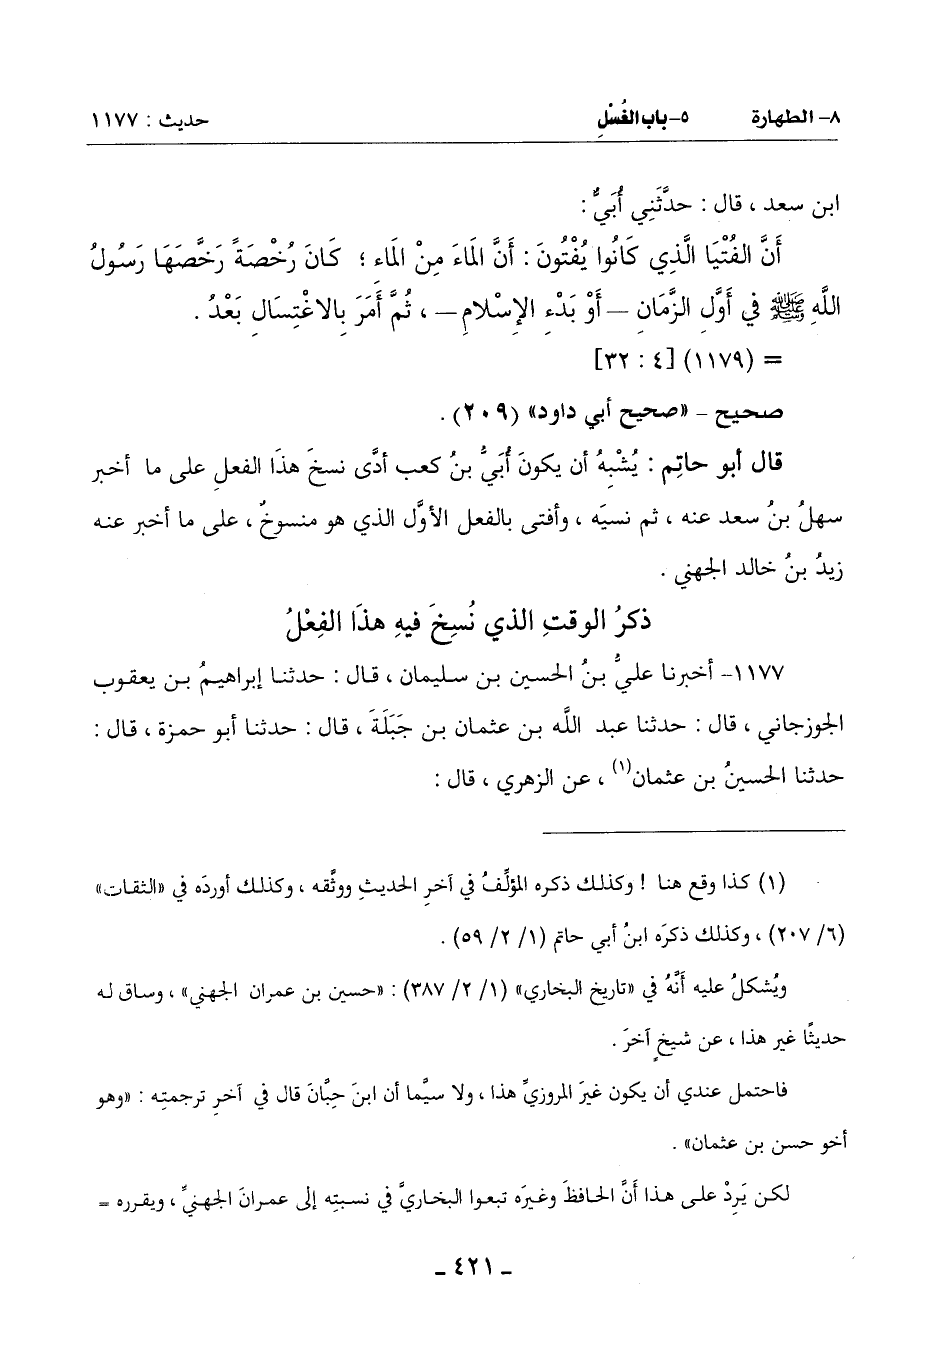 ٨- الطهارة ٥- باب الغُسْلِ حديث : ١١٧٧
ابن سعد ، قال : حدَّثَنِي أُبَيٌّ :
أَنَّ الفُتْيَا الَّذِي كَانُوا يُفْتُونَ : أَنَّ المَاءَ مِنْ المَاءِ ؛ كَانَ رُخْصَةً رَخَّصَهَا رَسُولُ
اللَّهِ ﷺ فِي أَوَّلِ الزَّمَانِ – أَوْ بَدْءِ الإِسْلامِ – ، ثُمَّ أَمَرَ بِالاغْتِسَالِ بَعْدُ .
= (١١٧٩) [٤ : ٣٢]
صحيح – «صحيح أبي داود» (٢٠٩) .
قال أبو حاتِم : يُشْبِهُ أن يكونَ أُبَيُّ بنُ كعب أدَّى نسخَ هذَا الفعلِ على ما أخبر
سهلُ بنُ سعد عنه ، ثم نسيَه ، وأفتى بالفعل الأوَّل الذي هو منسوخٌ ، على ما أخبر عنه
زيدُ بنُ خالد الجهني .
ذكرُ الوقتِ الذي نُسِخَ فيهِ هذَا الفِعْلُ
١١٧٧- أخبرنا عليُّ بنُ الحسين بن سليمان ، قال : حدثنا إبراهيمُ بن يعقوب
الجوزجاني ، قال : حدثنا عبد اللَّه بن عثمان بن جَبَلَةَ ، قال : حدثنا أبو حمزة ، قال :
حدثنا الحسينُ بن عثمان(١) ، عن الزهري ، قال :
(١) كذا وقع هنا ! وكذلك ذكره المؤلِّفُ في آخرِ الحديثِ ووثَّقه ، وكذلك أوردَه في «الثقات»
(٦/ ٢٠٧) ، وكذلك ذكرَه ابنُ أبي حاتم (١/ ٢/ ٥٩) .
ويُشكلُ عليه أنَّهُ في «تاريخ البخاري» (١/ ٢/ ٣٨٧) : «حسين بن عمران الجهني» ، وساق له
حديثًا غير هذا ، عن شيخٍ آخرَ .
فاحتمل عندي أن يكون غيرَ المروزيِّ هذا ، ولا سيَّما أن ابنَ حِبَّانَ قال في آخرِ ترجمتِه : «وهو
أخو حسن بن عثمان» .
لكن يَرِدْ على هذا أنَّ الحافظَ وغيرَه تبعوا البخاريَّ في نسبتِه إلى عمرانَ الجهنيِّ ، ويقرره =
- ٤٢١ -